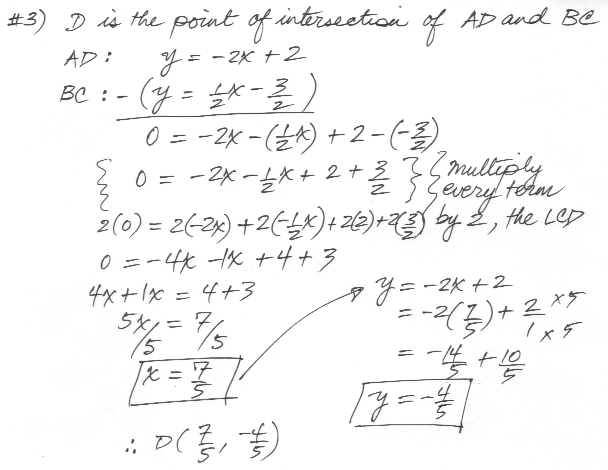 #3) D is the point of intersection of AD and BC
AD: y = -2x + 2
BC: -(y = 1/2x - 3/2)
0 = -2x - (1/2x) + 2 - (-3/2)
{ 0 = -2x - 1/2x + 2 + 3/2 } { multiply every term by 2, the LCD
2(0) = 2(-2x) + 2(-1/2x) + 2(2) + 2(3/2)
0 = -4x - 1x + 4 + 3
4x + 1x = 4 + 3
5x/5 = 7/5
x = 7/5
y = -2x + 2
= -2(7/5) + 2/1 x5 x5
= -14/5 + 10/5
y = -4/5
∴ D(7/5, -4/5)